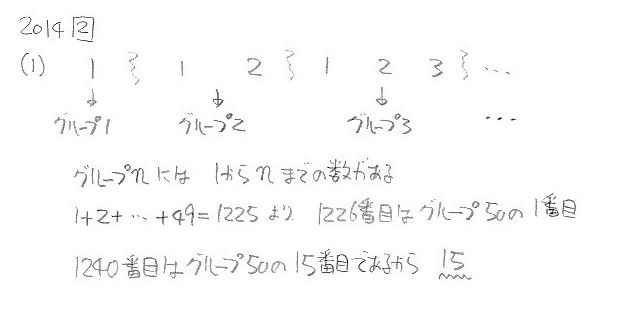 2014 2
(1) 1 } 1 2 } 1 2 3 } ...
↓ ↓ ↓
グループ1 グループ2 グループ3 ...
グループnには 1からnまでの数がある
1+2+…+49=1225より 1226番目はグループ50の1番目
1240番目はグループ50の15番目であるから 15